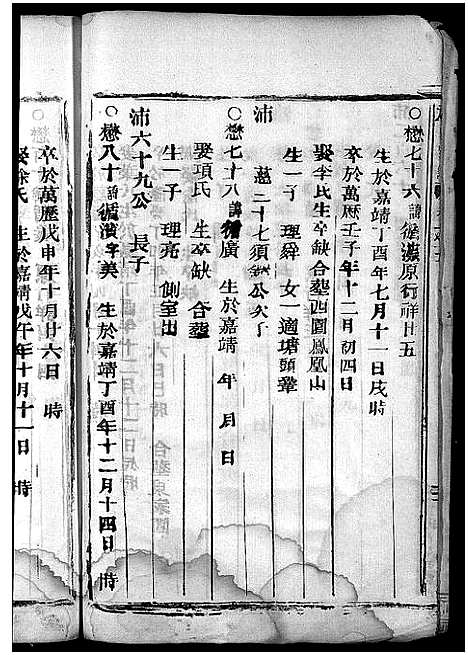 ○懋七十六諱循灝原行祥廿五
生於嘉靖丁酉年七月十一日戌時
卒於萬歷壬子年十二月初四日
娶李氏生卒缺合塟西園鳳凰山
生一子理舜女一適塘頭鞏
沛慈二十七須公次子
○懋七十八諱廣生於嘉靖年月日
娶項氏生卒缺合塟
生一子理亮側室出
沛六十九公長子
○懋八十諱循濱字美生於嘉靖丁酉年十二月十四日時
卒於萬歷戊申年十月廿六日時
娶徐氏生於嘉靖戊午年十月十一日時